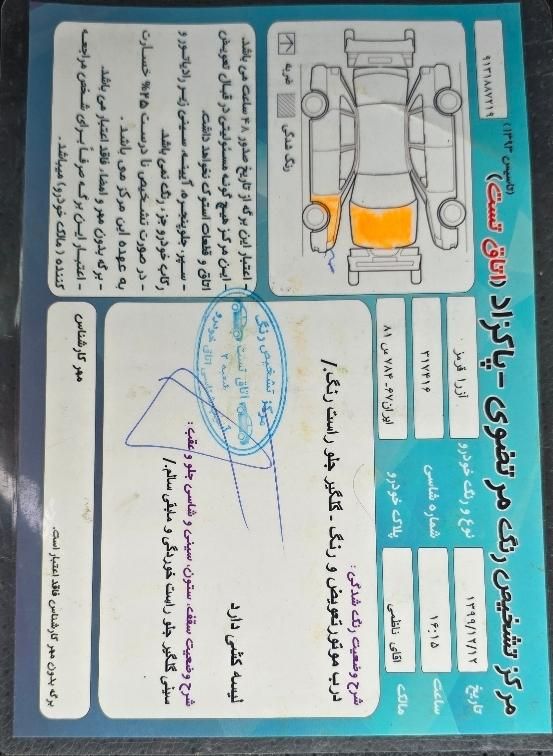 مرکز تشخیص رنگ مرتضوی - پاکزاد (اتاق تست)
(تاسیس ۱۳۹۳)
۹۱۳۱۸۸۷۲۱۹
تاریخ
۱۳۹۹/۱۲/۱۲
نوع و رنگ خودرو
آزرا قرمز
ساعت
۱۶:۱۵
شماره شاسی
۳۱۷۴۱۶
مالک
آقای ناظمی
پلاک خودرو
ایران۶۷- ۷۸۴ س ۸۱
ضربه
رنگ شدگی
شرح وضعیت رنگ شدگی:
درب موتور تعویض و رنگ - گلگیر جلو راست رنگ./
لیسه کشی دارد
شرح وضعیت سقف، ستون، سینی و شاسی جلو و عقب:
سینی گلگیر جلو راست خوردگی و مابقی سالم./
مرکز تشخیص رنگ
اتاق تست
شعبه ۲
- اعتبار این برگه از تاریخ صدور ۴۸ ساعت می باشد.
- این مرکز هیچ گونه مسئولیتی در قبال تعویض
اتاق و قطعات استوک نخواهد داشت.
- سپر، جلوپنجره، آیینه، سینی زیر رادیاتور و
رکاب خودرو جزء رنگ نمی باشد.
- در صورت تشخیص نادرست ۲۵% خسارت
به عهده این مرکز می باشد.
- برگه بدون مهر و امضاء فاقد اعتبار می باشد.
- اعتبار این برگه صرفاً برای شخص مراجعه
کننده (مالک خودرو) میباشد.
مهر کارشناس
برگه بدون مهر کارشناس فاقد اعتبار است.